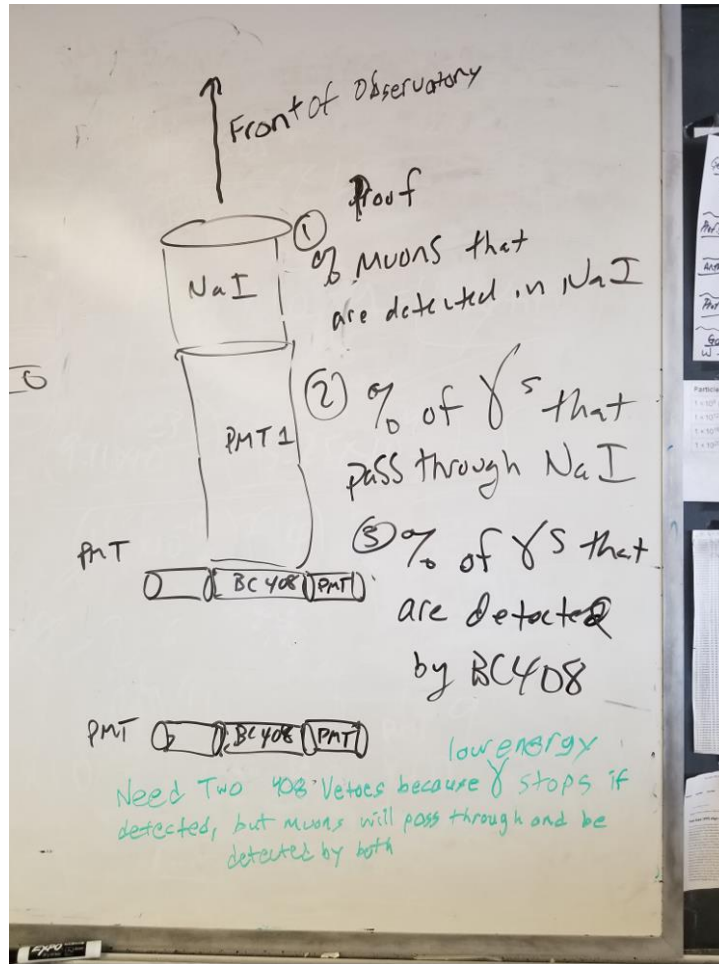 Front of Observatory
Proof
① % muons that
are detected in NaI
NaI
② % of γs that
pass through NaI
PMT 1
③ % of γs that
are detected
by BC408
PMT
BC 408 PMT
PMT
BC 408 PMT
low energy
Need Two 408 Vetoes because γ stops if
detected, but muons will pass through and be
detected by both
EXPO
Particle